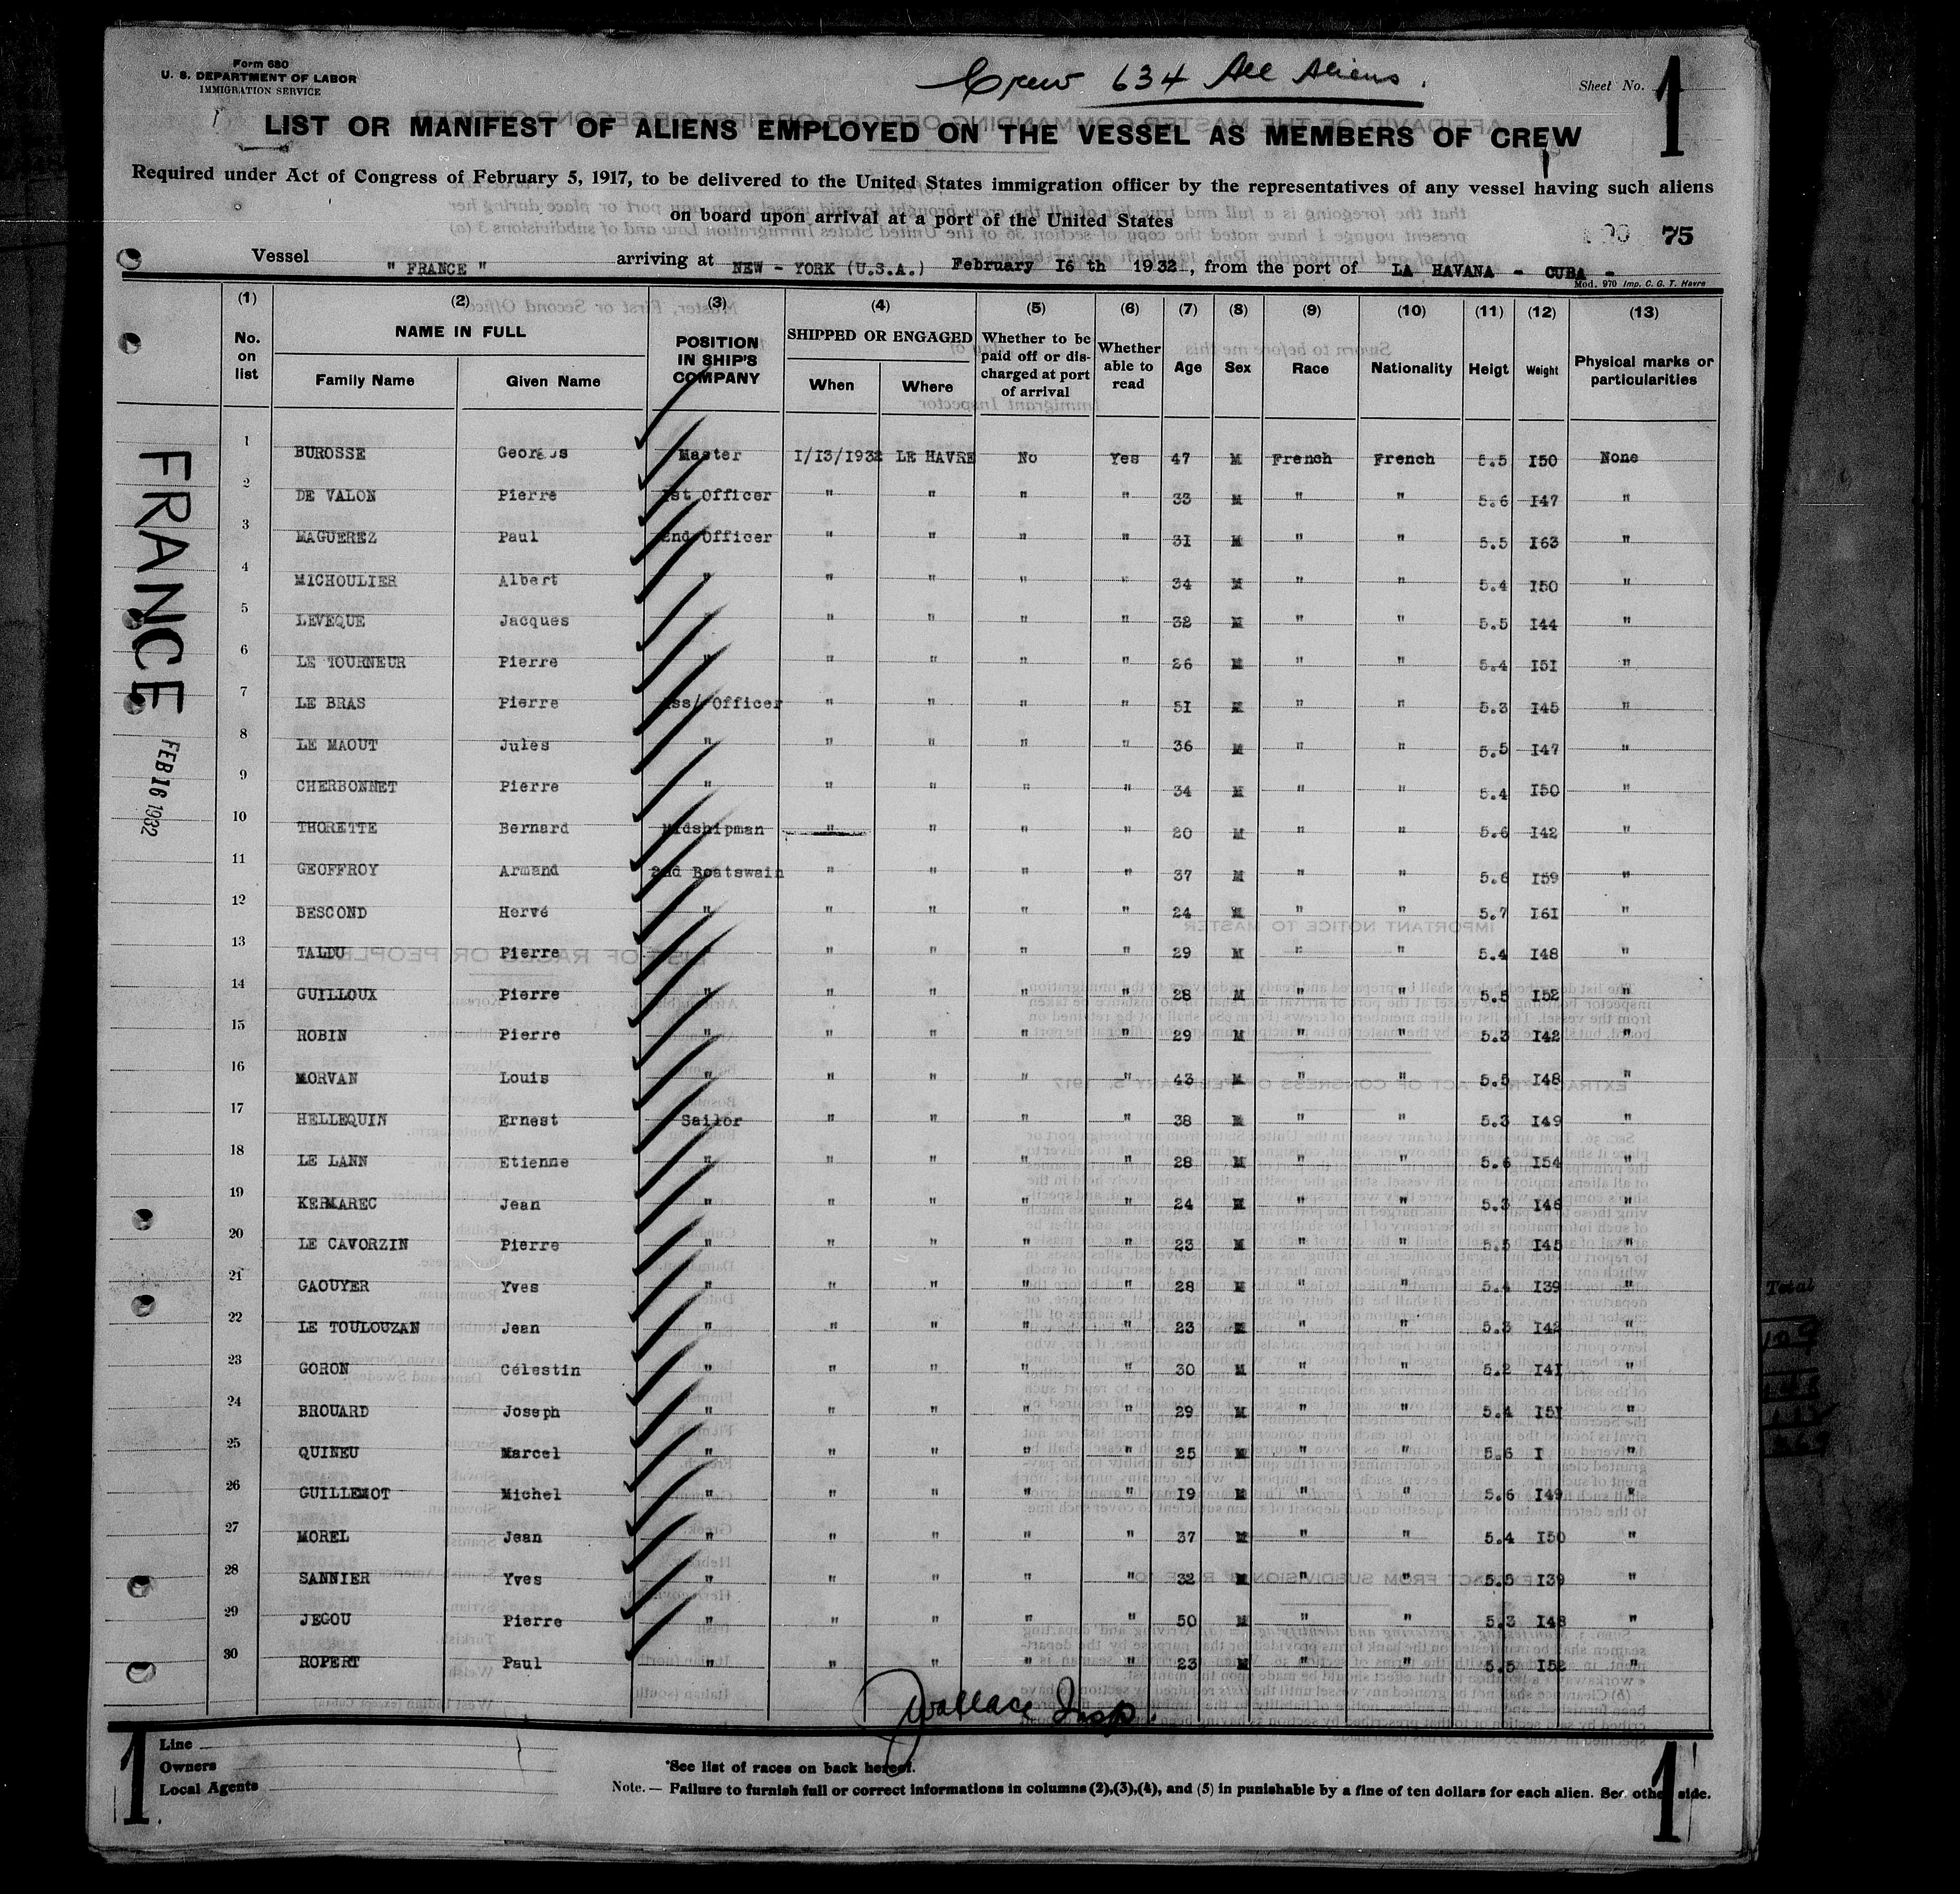 Form 680
U. S. DEPARTMENT OF LABOR
IMMIGRATION SERVICE
Crew 634 All Aliens.
Sheet No. 1
LIST OR MANIFEST OF ALIENS EMPLOYED ON THE VESSEL AS MEMBERS OF CREW
Required under Act of Congress of February 5, 1917, to be delivered to the United States immigration officer by the representatives of any vessel having such aliens
on board upon arrival at a port of the United States
75
Vessel " FRANCE " arriving at NEW - YORK (U.S.A.) February I6 th 1932, from the port of LA HAVANA - CUBA -
Mod. 970 Imp. C. G. T. Havre
(1) (2) (3) (4) (5) (6) (7) (8) (9) (10) (11) (12) (13)
No. on list NAME IN FULL Family Name Given Name POSITION IN SHIP'S COMPANY SHIPPED OR ENGAGED When Where Whether to be paid off or discharged at port of arrival Whether able to read Age Sex Race Nationality Heigt Weight Physical marks or particularities
1 BUROSSE Georges Master I/I3/1932 LE HAVRE No Yes 47 M French French 5.5 I50 None
2 DE VALON Pierre 1st Officer " " " " 33 M " " 5.6 I47 "
3 MAGUEREZ Paul 2nd Officer " " " " 3I M " " 5.5 I63 "
4 MICHOULIER Albert " " " " " 34 M " " 5.4 I50 "
5 LEVEQUE Jacques " " " " " 32 M " " 5.5 I44 "
6 LE TOURNEUR Pierre " " " " " 26 M " " 5.4 I5I "
7 LE BRAS Pierre Ass/ Officer " " " " 5I M " " 5.3 I45 "
8 LE MAOUT Jules " " " " " 36 M " " 5.5 I47 "
9 CHERBONNET Pierre " " " " " 34 M " " 5.4 I50 "
10 THORETTE Bernard Midshipman " " " " 20 M " " 5.6 I42 "
11 GEOFFROY Armand 2nd Boatswain " " " " 37 M " " 5.6 I59 "
12 BESCOND Hervé " " " " " 24 M " " 5.7 I6I "
13 TALDU Pierre " " " " " 29 M " " 5.4 I48 "
14 GUILLOUX Pierre " " " " " 28 M " " 5.5 I52 "
15 ROBIN Pierre " " " " " 29 M " " 5.3 I42 "
16 MORVAN Louis " " " " " 43 M " " 5.5 I48 "
17 HELLEQUIN Ernest Sailor " " " " 38 M " " 5.3 I49 "
18 LE LANN Etienne " " " " " 28 M " " 5.6 I54 "
19 KERMAREC Jean " " " " " 24 M " " 5.3 I46 "
20 LE CAVORZIN Pierre " " " " " 23 M " " 5.5 I45 "
21 GAOUYER Yves " " " " " 28 M " " 5.4 I39 "
22 LE TOULOUZAN Jean " " " " " 23 M " " 5.3 I42 "
23 GORON Célestin " " " " " 30 M " " 5.2 I4I "
24 BROUARD Joseph " " " " " 29 M " " 5.4 I5I "
25 QUINEU Marcel " " " " " 25 M " " 5.6 I "
26 GUILLEMOT Michel " " " " " 19 M " " 5.6 I49 "
27 MOREL Jean " " " " " 37 M " " 5.4 I50 "
28 SANNIER Yves " " " " " 32 M " " 5.5 I39 "
29 JEGOU Pierre " " " " " 50 M " " 5.3 I48 "
30 ROPERT Paul " " " " " 23 M " " 5.5 I52 "
FRANCE
FEB 16 1932
Wallace Insp.
Line
Owners
Local Agents
*See list of races on back hereof.
Note. — Failure to furnish full or correct informations in columns (2),(3),(4), and (5) in punishable by a fine of ten dollars for each alien. See other side.
1
1
Total